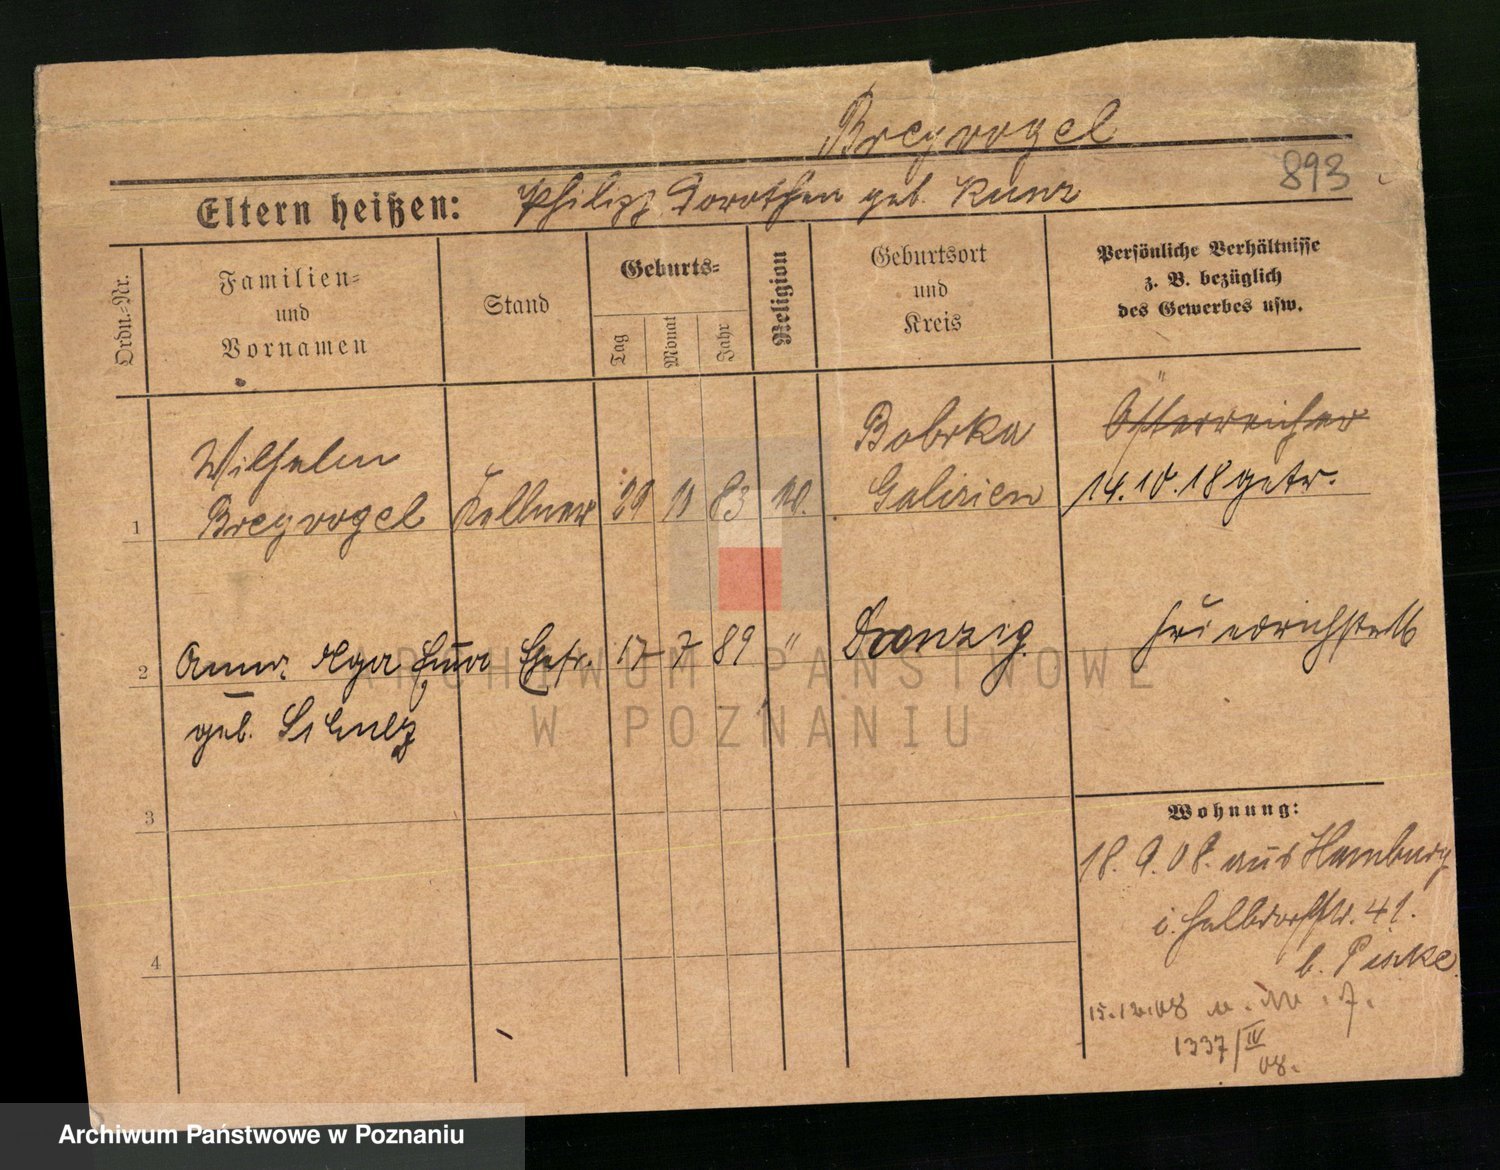 Bregvogel
893
Eltern heißen: Philipp, Dorothea geb. Kunz
Ordn.-Nr.
Familien=
und
Vornamen
Stand
Geburts=
Tag
Monat
Jahr
Religion
Geburtsort
und
Kreis
Persönliche Verhältnisse
z. B. bezüglich
des Gewerbes usw.
Wilhelm
1 Bregvogel Kellner 29 11 83
Bobrka
Galizien
Österreicher
14.10.18 getr.
2 Anna Olga Ehefr. 17 7 89 " Danzig
geb. Schulz
3
4
Wohnung:
18.9.08. aus Hamburg
Halbdorfstr. 41.
b.
15.12.08
1337/IV
08.
ARCHIWUM PAŃSTWOWE
W POZNANIU
Archiwum Państwowe w Poznaniu